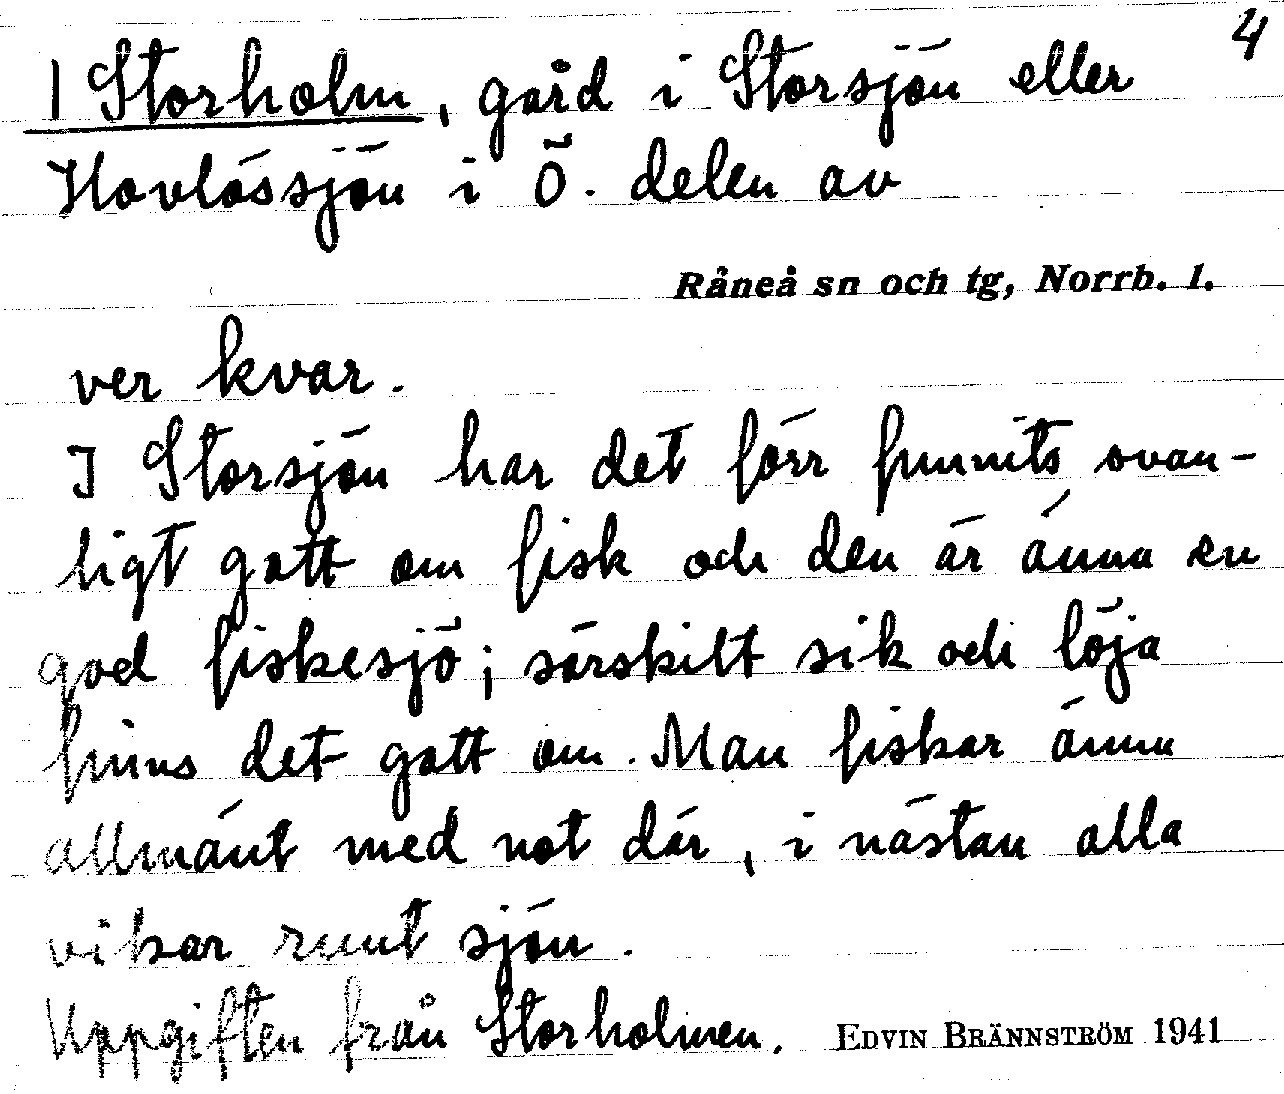 4
1 Storholm, gård i Storsjön eller
Hovlössjön i Ö. delen av
Råneå sn och tg, Norrb. l.
ver kvar.
I Storsjön har det förr funnits ovan-
ligt gott om fisk och den är ännu en
god fiskesjö; särskilt sik och löja
finns det gott om. Man fiskar ännu
allmänt med not där, i nästan alla
vikar runt sjön.
Uppgiften från Storholmen. EDVIN BRÄNNSTRÖM 1941